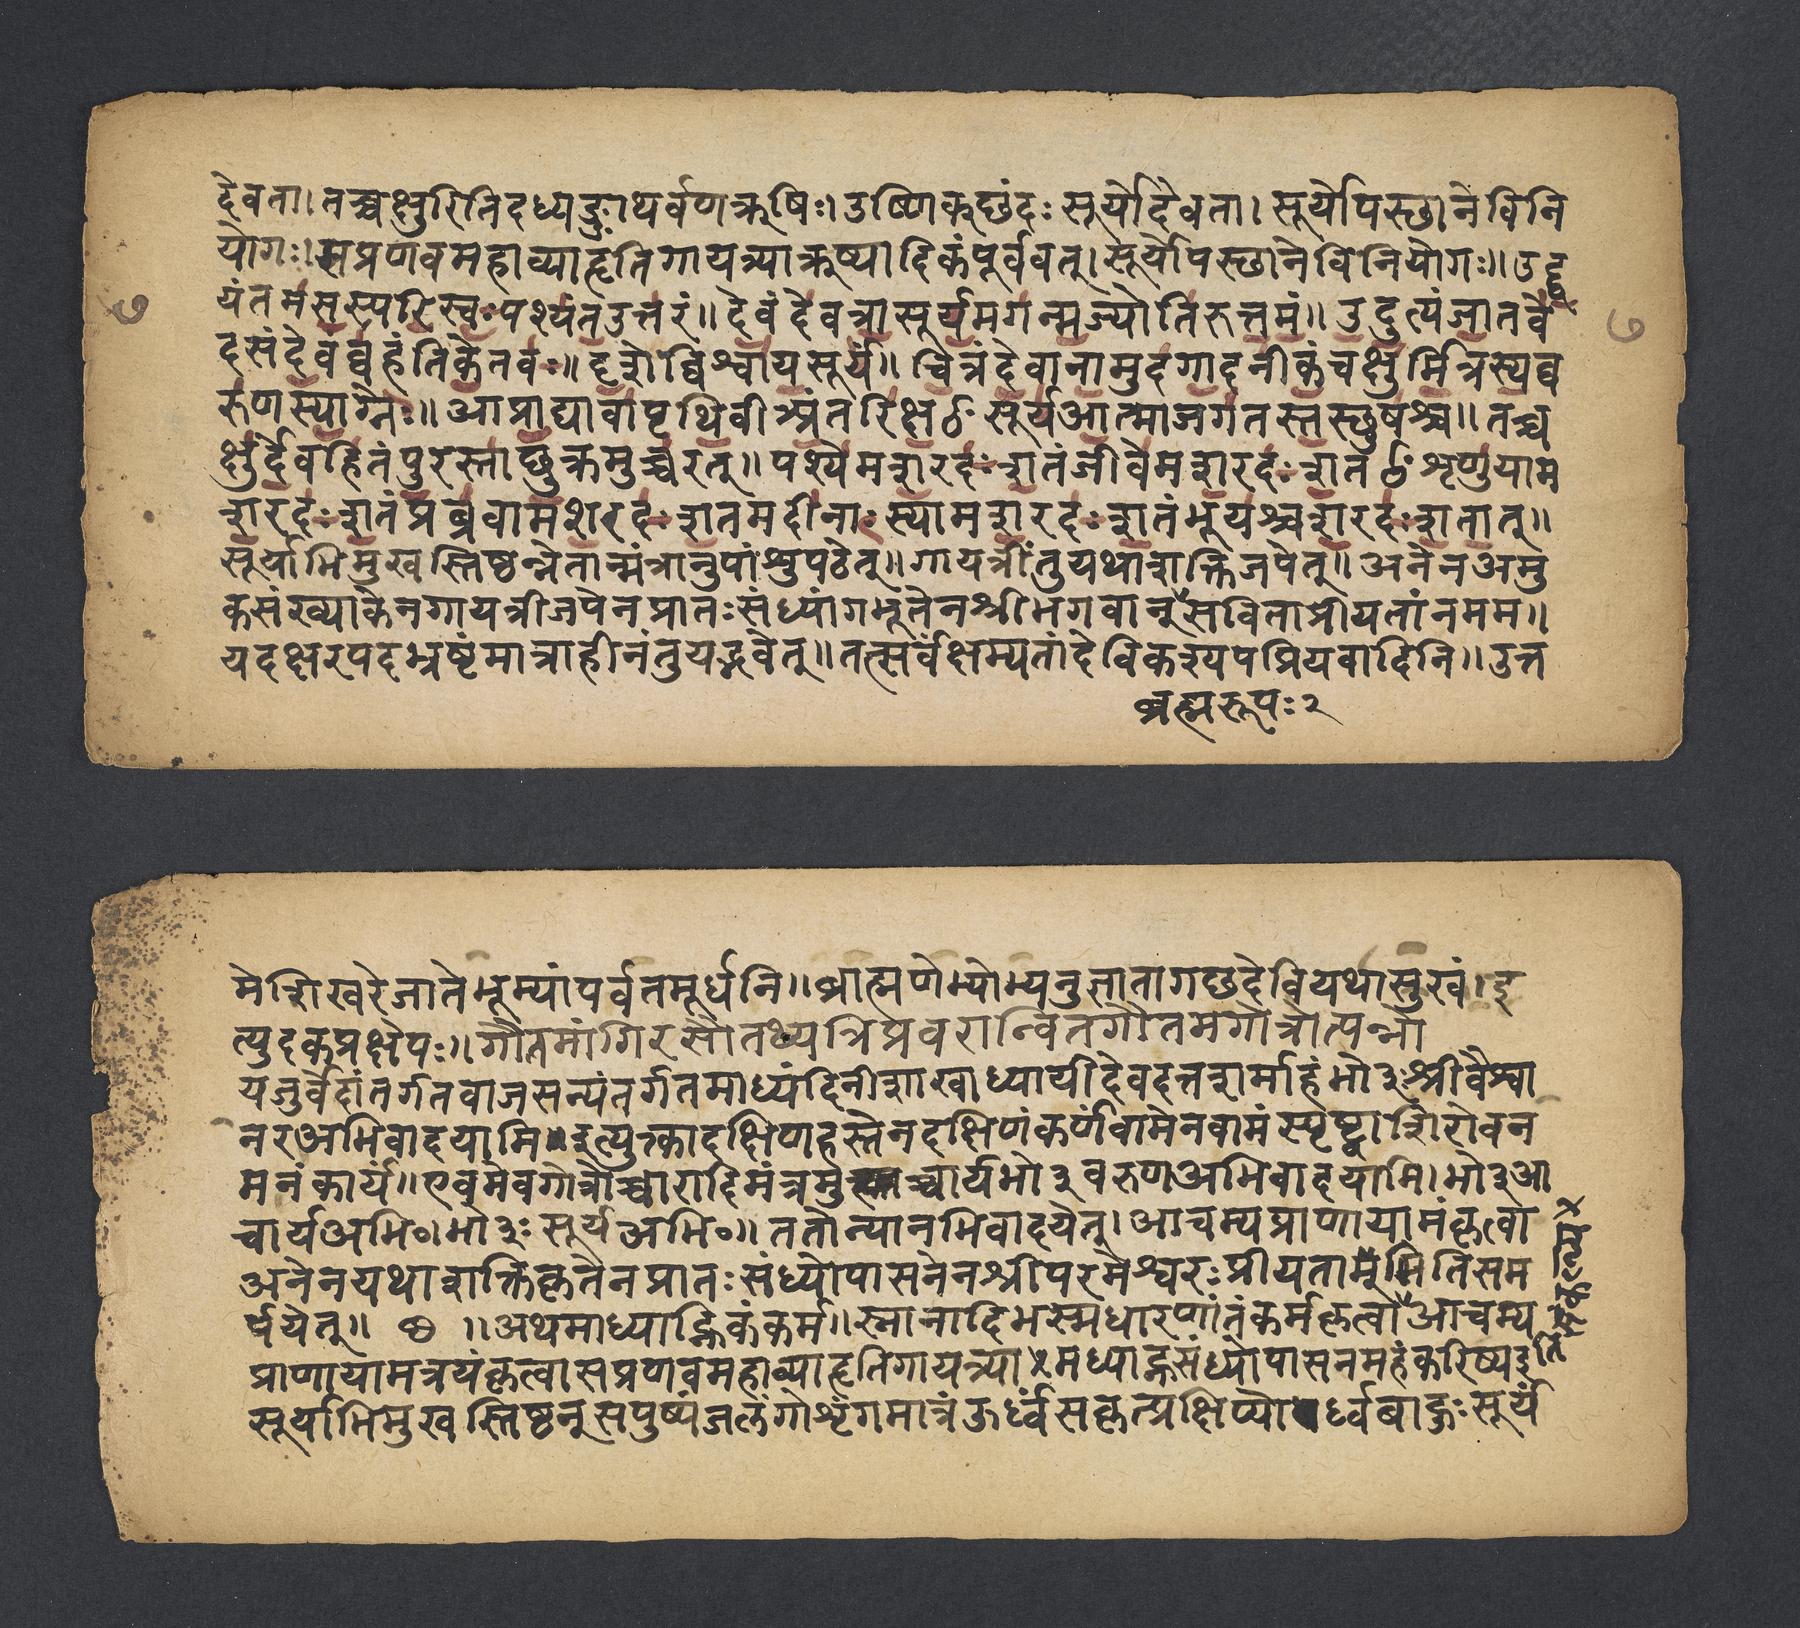 देवता। तच्चक्षुरितिदध्यङ्ङाथर्वणऋषिः। उष्णिक्छंदः सूर्योदेवता। सूर्योपस्छानेविनि
योगः। सप्रणवमहाव्याहृतिगायत्र्याऋष्यादिकंपूर्ववत्। सूर्योपस्छानेविनियोगः॥ उद्व
यंतमसस्परिस्वःपश्यंतउत्तरं॥ देवंदेवत्रासूर्यमगन्मज्योतिरुत्तमं॥ उदुत्यंजातवे
दसंदेवंव्वहंतिकेतवः॥ दृशेव्विश्वायसूर्यं॥ चित्रंदेवानामुदगादनीकंचक्षुर्मित्रस्यव्व
रुणस्याग्नेः॥ आप्राद्यावापृथिवीअंतरिक्षᳪसूर्यआत्माजगतस्तस्छुषश्च॥ तच्च
क्षुर्देवहितंपुरस्ताछुक्रमुच्चरत्॥ पश्येमशरदःशतंजीवेमशरदःशतᳪशृणुयाम
शरदःशतंप्रब्रवामशरदःशतमदीनाःस्यामशरदःशतंभूयश्चशरदःशतात्॥
सूर्याभिमुखस्तिष्ठन्नेतान्मंत्रानुपांशुपठेत्॥ गायत्रींतुयथाशक्तिजपेत्॥ अनेनअमु
कसंख्याकेनगायत्रीजपेनप्रातःसंध्यांगभूतेनश्रीभगवान्सविताप्रीयतांनमम॥
यदक्षरपदभ्रष्टंमात्राहीनंतुयद्भवेत्॥ तत्सर्वंक्षम्यतांदेविकश्यपप्रियवादिनि॥ उत्त
ब्रह्मरूपः२
७
७
मेशिखरेजातेभूम्यांपर्वतमूर्धनि॥ ब्राह्मणेभ्योभ्यनुज्ञातागछदेवियथासुखं। इ
त्युदकप्रक्षेपः॥ गौतमांगिरसौतथ्यत्रिप्रवरान्वितगौतमगोत्रोत्पन्नो
यजुर्वेदांतर्गतवाजसन्यंतर्गतमाध्यंदिनीशाखाध्यायीदेवदत्तशर्माहंभो३ःश्रीवैश्वा
नरअभिवादयामि॥ इत्युक्त्कादक्षिणहस्तेनदक्षिणंकर्णंवामेनवामंस्पृष्ट्वाशिरोवन
मनंकार्यं॥ एवमेवगोत्रोच्चारादिमंत्रमुच्चार्यभो३वरुणअभिवादयामि। भो३आ
चार्यअभि०। भो३ः सूर्यअभि०॥ ततोन्यानभिवादयेत्। आचम्यप्राणायामंकृत्वा
अनेनयथाशक्तिकृतेनप्रातःसंध्योपासनेनश्रीपरमेश्वरःप्रीयतामितिसम
र्पयेत्॥ ॥अथमाध्याह्निकंकर्म॥ स्नानादिभस्मधारणांतंकर्मकृत्वाआचम्य
प्राणायामत्रयंकृत्वासप्रणवमहाव्याहृतिगायत्र्यामध्याह्नसंध्योपासनमहंकरिष्यइति
सूर्याभिमुखस्तिष्ठन्सपुष्पंजलंगोशृंगमात्रंऊर्ध्वंसकृत्प्रक्षिप्योर्ध्वबाहुःसूर्यं